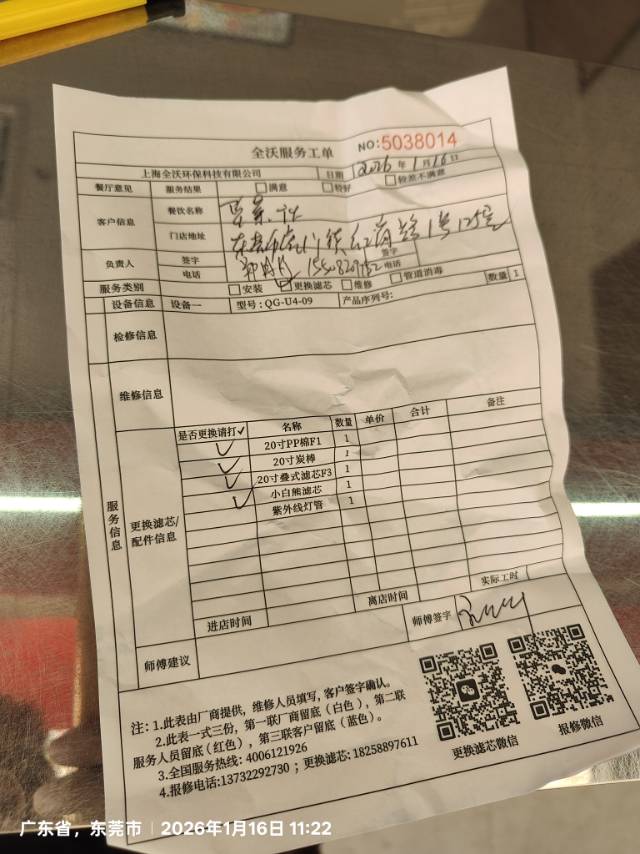 全沃服务工单 NO:5038014
上海全沃环保科技有限公司 日期 2026年1月16日
餐厅意见 服务结果 满意 较好 较差不满意
客户信息 餐饮名称
门店地址 1号125号
负责人 签字 签字
电话 电话
服务类别 安装 更换滤芯 维修 管道消毒 数量 1
设备信息 设备一 型号:QG-U4-09 产品序列号:
检修信息
维修信息
服务信息
更换滤芯/配件信息
是否更换请打✓ 名称 数量 单价 合计 备注
✓ 20寸PP棉F1 1
✓ 20寸炭棒 1
✓ 20寸叠式滤芯F3 1
✓ 小白熊滤芯 1
紫外线灯管 1
进店时间 离店时间 实际工时
师傅建议 师傅签字
注:1.此表由厂商提供,维修人员填写,客户签字确认。
2.此表一式三份,第一联厂商留底(白色),第二联
服务人员留底(红色),第三联客户留底(蓝色)。
3.全国服务热线:4006121926
4.报修电话:13732292730;更换滤芯:18258897611
更换滤芯微信 报修微信
广东省,东莞市 2026年1月16日 11:22